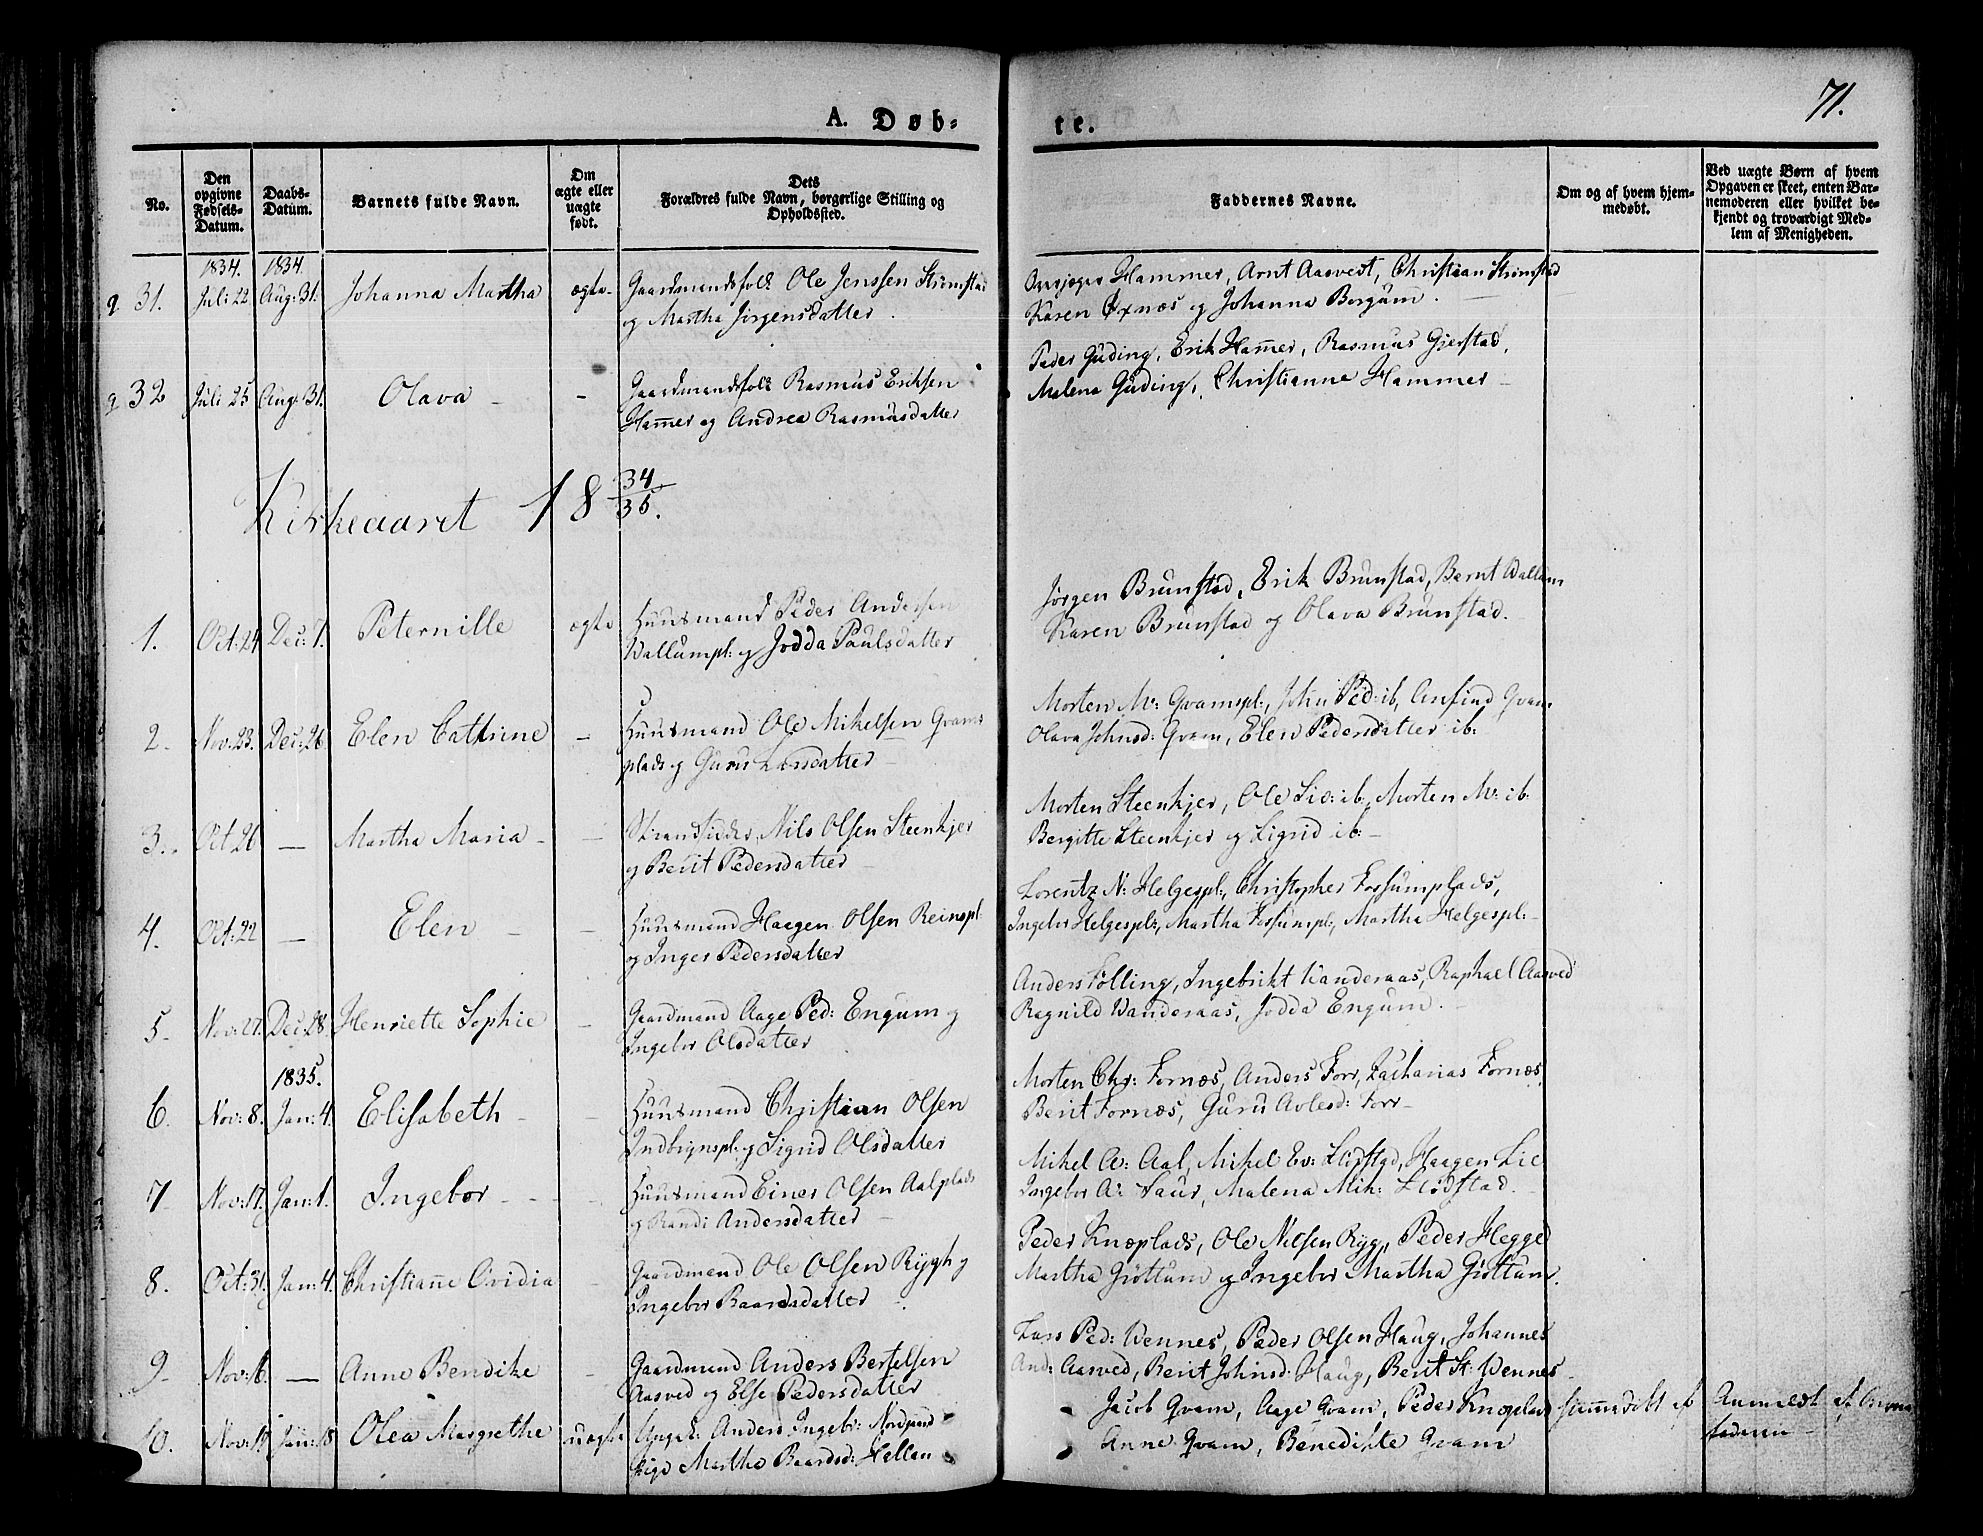 71.
A. Døb-
te.
No.
Den opgivne Fødsels-Datum.
Daabs-Datum.
Barnets fulde Navn.
Om ægte eller uægte født.
Dets Forældres fulde Navn, borgerlige Stilling og Opholdssted.
Faddernes Navne.
Om og af hvem hjem-
medøbt.
Ved uægte Børn af hvem
Opgaven er skeet, enten Bar-
nemoderen eller hvilket be-
kjendt og troværdigt Med-
lem af Menigheden.
1834. 1834.
g 31. Juli: 22. Aug: 31. Johanna Martha ægte Gaardmandsfolk Ole Jenssen Strømstad
og Martha Jørgensdatter.
Hammer, Arnt Aasvest, Christian Strømstad
Karen Øxnæs og Johanna Borgum.
g 32 Juli 25 Aug: 31. Olava - - Gaardmandsfolk Rasmus Eriksen
Hammer og Andrea Rasmusdatter
Peder Guding, Erik Hammer, Rasmus Gjerstad,
Malena Guding, Christianne Hammer
Kirkeaaret 18 34/35.
1. Oct: 24 Dec: 7. Peternille ægte Huusmand Peder Andersen
Wallumpl: og Jodda Paulsdatter
Jørgen Brunstad, Erik Brunstad, Bernt Wallum
Karen Brunstad og Olava Brunstad.
2. Nov: 23. Dec: 26 Elen Cathrine - Huusmand Ole Mikelsen Qvams
plads og Guru Larsdatter
Morten M: Qvamspl:, John Ped: ib, Anfind Qvam
Olava Johnsd: Qvam, Elen Pedersdatter ib:
3. Oct 26 - Martha Maria - - Strandsidder Nils Olsen Steenkjer
og Berit Pedersdatter
Morten Steenkjer, Ole Siv: ib, Morten M: ib:
Bergitte Steenkjer og Sigrid ib:
4. Oct: 22 - Elen - Huusmand Haagen Olsen Reinspl:
og Inger Pedersdatter
Lorentz N: Helgespl:, Christopher Fossumplads,
Ingebor Helgespl:, Martha Fossumspl:, Martha Helgespl:
5. Nov: 27. Dec: 28 Henriette Sophie - Gaardmand Aage Ped: Engum og
Ingebor Olsdatter
Anders Følling, Ingebrikt Vanderaas, Raphael Aasved
Ragnild Vanderaas, Jodda Engum.
1835.
6. Nov: 8. Jan: 4. Elisabeth - Huusmand Christian Olsen
Indbrynspl. og Sigrid Olsdatter
Morten Chr: Fornæs, Anders Forr, Zacharias Fornæs,
Berit Fornæs, Guru Avlesd: Forr
7 Nov: 17. Jan: 1. Ingebor - - Huusmand Einer Olsen Aalplads
og Randi Andersdatter
Mikel A: Aal, Mikel Ev: Flødstad, Haagen Lie
Ingebor A: Saur, Malena Mik: Flødstad.
8. Oct: 31. Jan: 4. Christianne Ovidia - Gaardmand Ole Olsen Rygh og
Ingebor Baardsdatter
Peder Knoplads, Ole Nilsen Ryg, Peder Hegge
Martha Gjøttum og Ingebor Martha Gjøttum.
9 Nov: 6. - Anne Bendikte - Gaardmand Anders Bertelsen
Aasved og Else Pedersdatter
Lars Ped: Wennes, Peder Olsen Haug, Johannes
And: Aasved, Berit Johnsd: Haug, Berit St: Wennes
10. Nov: 19 Jan: 18 Olea Margrethe uægte Ungk: Anders Ingebr:
Pige Martha Baardsd: Hellan
Jacob Qvam, Aage Qvam, Peder Knoplads
Anne Qvam, Benedikte Qvam
hjemmedøbt af
Anmeldt af Barne
faderen